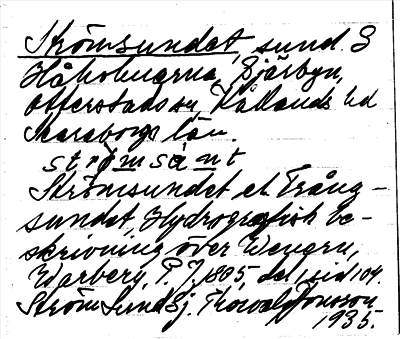 Strömsundet, sund. S
Håholmarna, Bjärbyn,
Otterstads sn, Kållands hd
Skaraborgs län.
strømsànt
Strömsundet el Trång-
sundet, Hydrografisk be-
skrivning över Wenern,
Warberg, P. J. 1895, del 1, sid 104.
Ström Sund Sj. Thorvald Jonsson
1935.